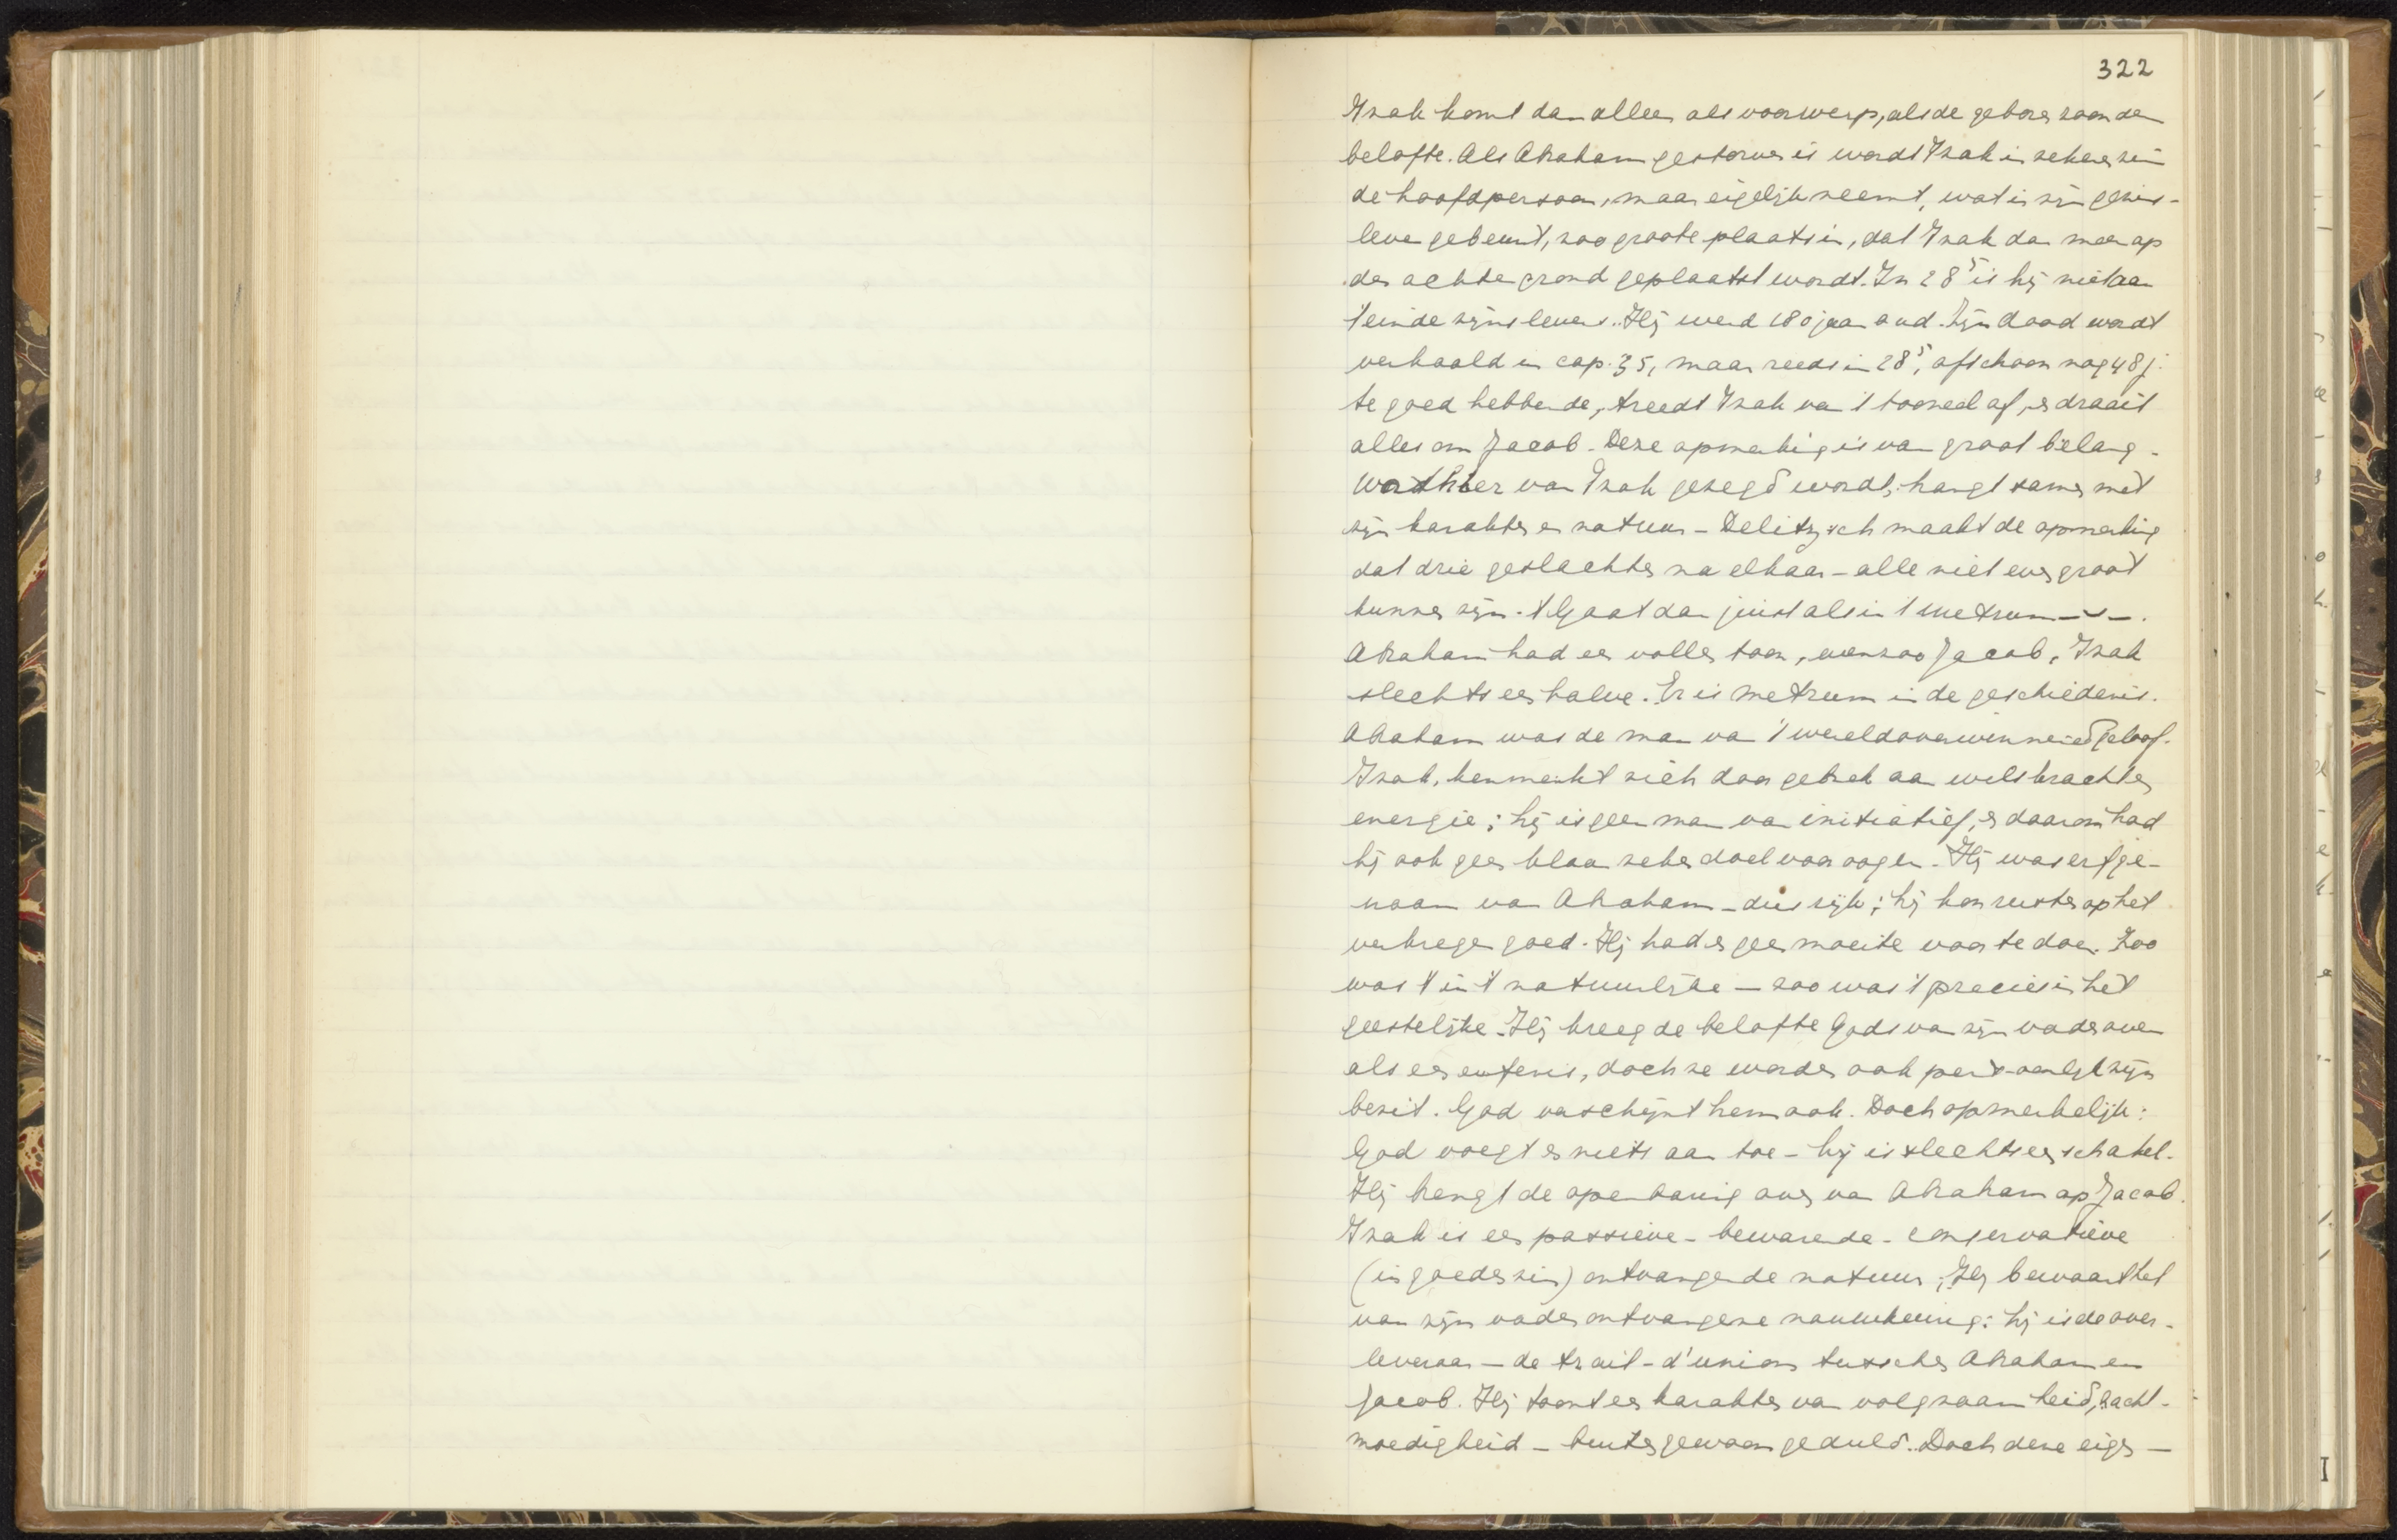 322
Izak komt dan alleen als voorwerp, als de geboren zoon der
belofte. Als Abraham gestorven is wordt Izak in zekeren zin
de hoofdpersoon, maar eigelijk neemt, wat in zijn gezins-
leven gebeurt, zoo groote plaats in, dat Izak dan meer op
den achtergrond geplaatst wordt. In 28⁵ is hij niet aan
't einde zijns levens. Hij werd 180 jaar oud. Zijn dood wordt
verhaald in cap. 35, maar reeds in 28⁵, ofschoon nog 48 j.
te goed hebbende, treedt Izak van 't tooneel af, en draait
alles om Jacob. Deze opmerking is van groot belang.
Wat hier van Izak gezegd wordt, hangt samen met
zijn karakter en natuur - Delitzsch maakt de opmerking
dat drie geslachten na elkaar - alle niet even groot
kunnen zijn. 't Gaat dan juist als in 't metrum – ᴗ –.
Abraham had een vollen toon, evenzoo Jacob, Izak
slechts een halve. Er is metrum in de geschiedenis.
Abraham was de man van 't wereldoverwinnend geloof.
Izak, kenmerkt zich door gebrek aan wilskracht en
energie; hij is geen man van initiatief, en daarom had
hij ook geen klaar zeker doel voor oogen. Hij was erfge-
naam van Abraham - dus rijk; hij kon rusten op het
verkregen goed. Hij had er geen moeite voor te doen. Zoo
was 't in 't natuurlijke - zoo was 't precies in het
geestelijke. Hij kreeg de belofte Gods van zijn vader over
als een erfenis, doch ze worden ook persoonlijk zijn
bezit. God verschijnt hem ook. Doch opmerkelijk:
God voegt er niets aan toe - hij is slechts een schakel.
Hij brengt de openbaring over van Abraham op Jacob.
Izak is een passieve - bewarende - conservatieve
(in goeden zin) ontvangende natuur; Hij bewaart het
van zijn vader ontvangene nauwkeurig: hij is de over-
leveraar - de trait-d'union tusschen Abraham en
Jacob. Hij toont een karakter van volgzaamheid, zacht-
moedigheid - buitengewoon geduld. Doch deze eigen-